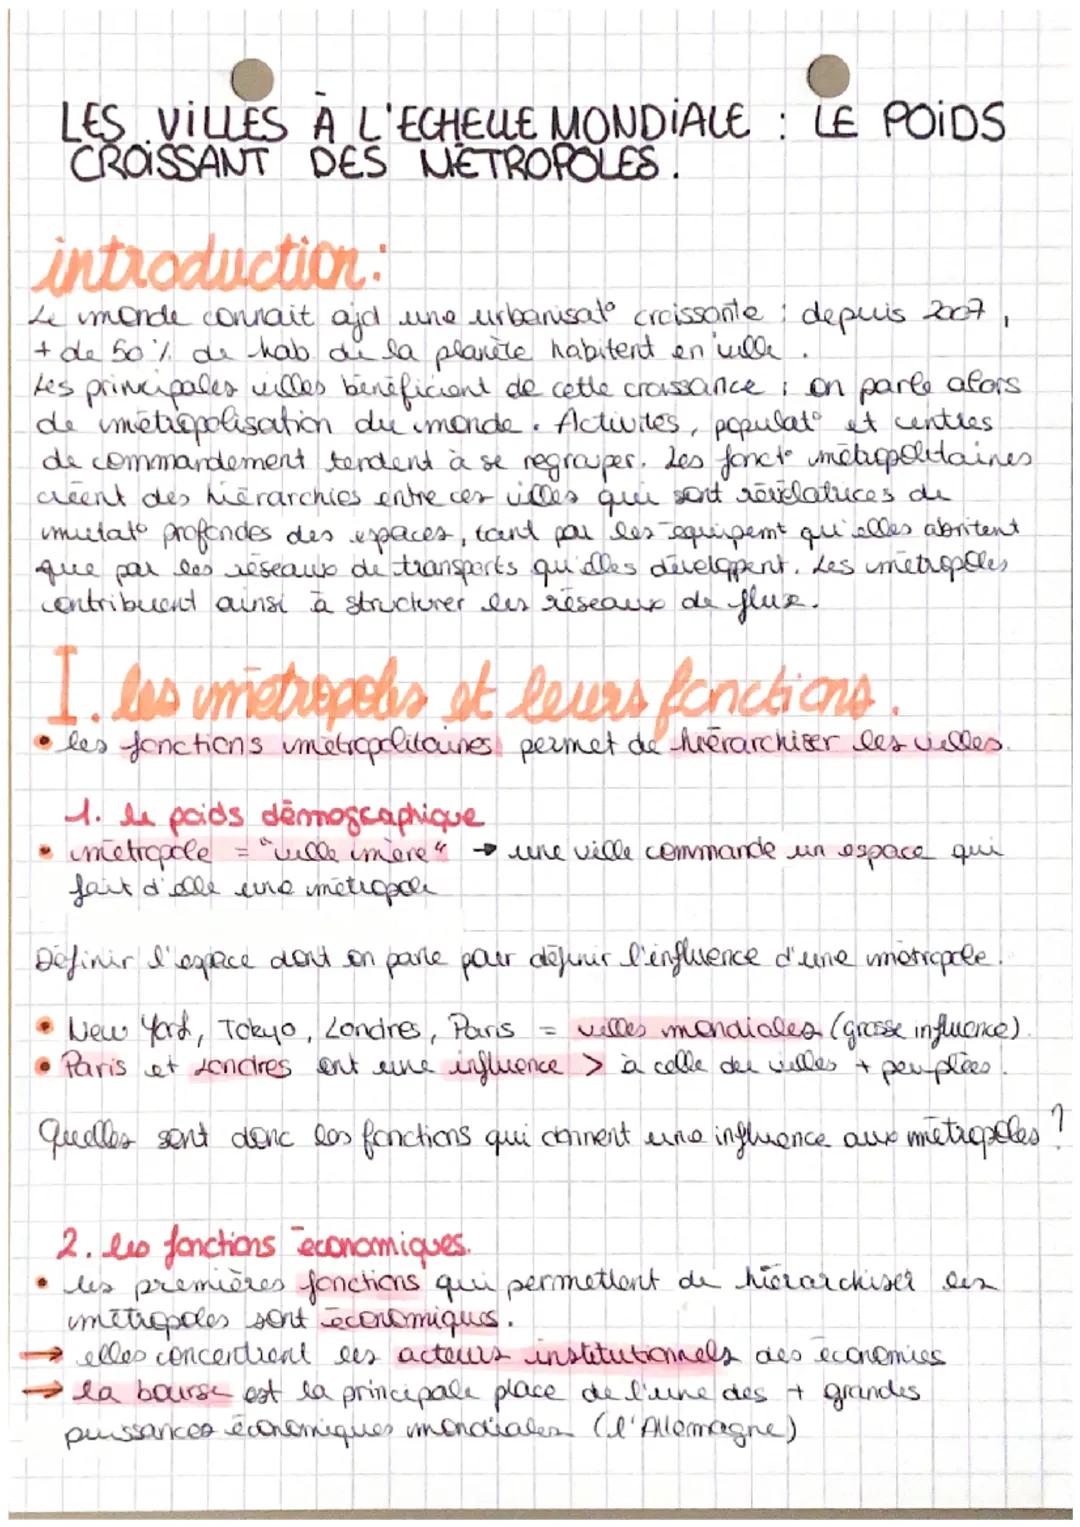 LES VILLES À L'ECHELLE MONDIALE : LE POIDS
CROISSANT DES MÉTROPOLES.
introduction:
Le monde connait ajd une urbanisat° croissante ; depuis 2007,
+ de 50% de hab de la planète habitent en ville.
Les principales villes bénéficient de cette croissance ; on parle alors
de métropolisation du monde. Activités, populat° et centres
de commandement tendent à se regrouper. Les fonct° métropolitaines
créent des hiérarchies entre ces villes qui sont révélatrices de
mutat° profondes des espaces, tant par les équipemt qu'elles abritent
que par les réseaux de transports qu'elles développent. Les métropoles
contribuent ainsi à structurer les réseaux de flux.
I. les métropoles et leurs fonctions.
• les fonctions métropolitaines permet de hiérarchiser les villes.
1. le poids démographique
• métropole = "ville mère" → une ville commande un espace qui
fait d'elle une métropole
Définir l'espace dont on parle pour définir l'influence d'une métropole.
• New York, Tokyo, Londres, Paris = villes mondiales (grosse influence).
• Paris et Londres ont une influence > à celle des villes + peuplées.
Quelles sont donc les fonctions qui donnent une influence aux métropoles ?
2. les fonctions économiques.
• les premières fonctions qui permettent de hiérarchiser les
métropoles sont économiques.
→ elles concentrent les acteurs institutionnels des économies
→ la bourse est la principale place de l'une des + grandes
puissances économiques mondiales (l'Allemagne)